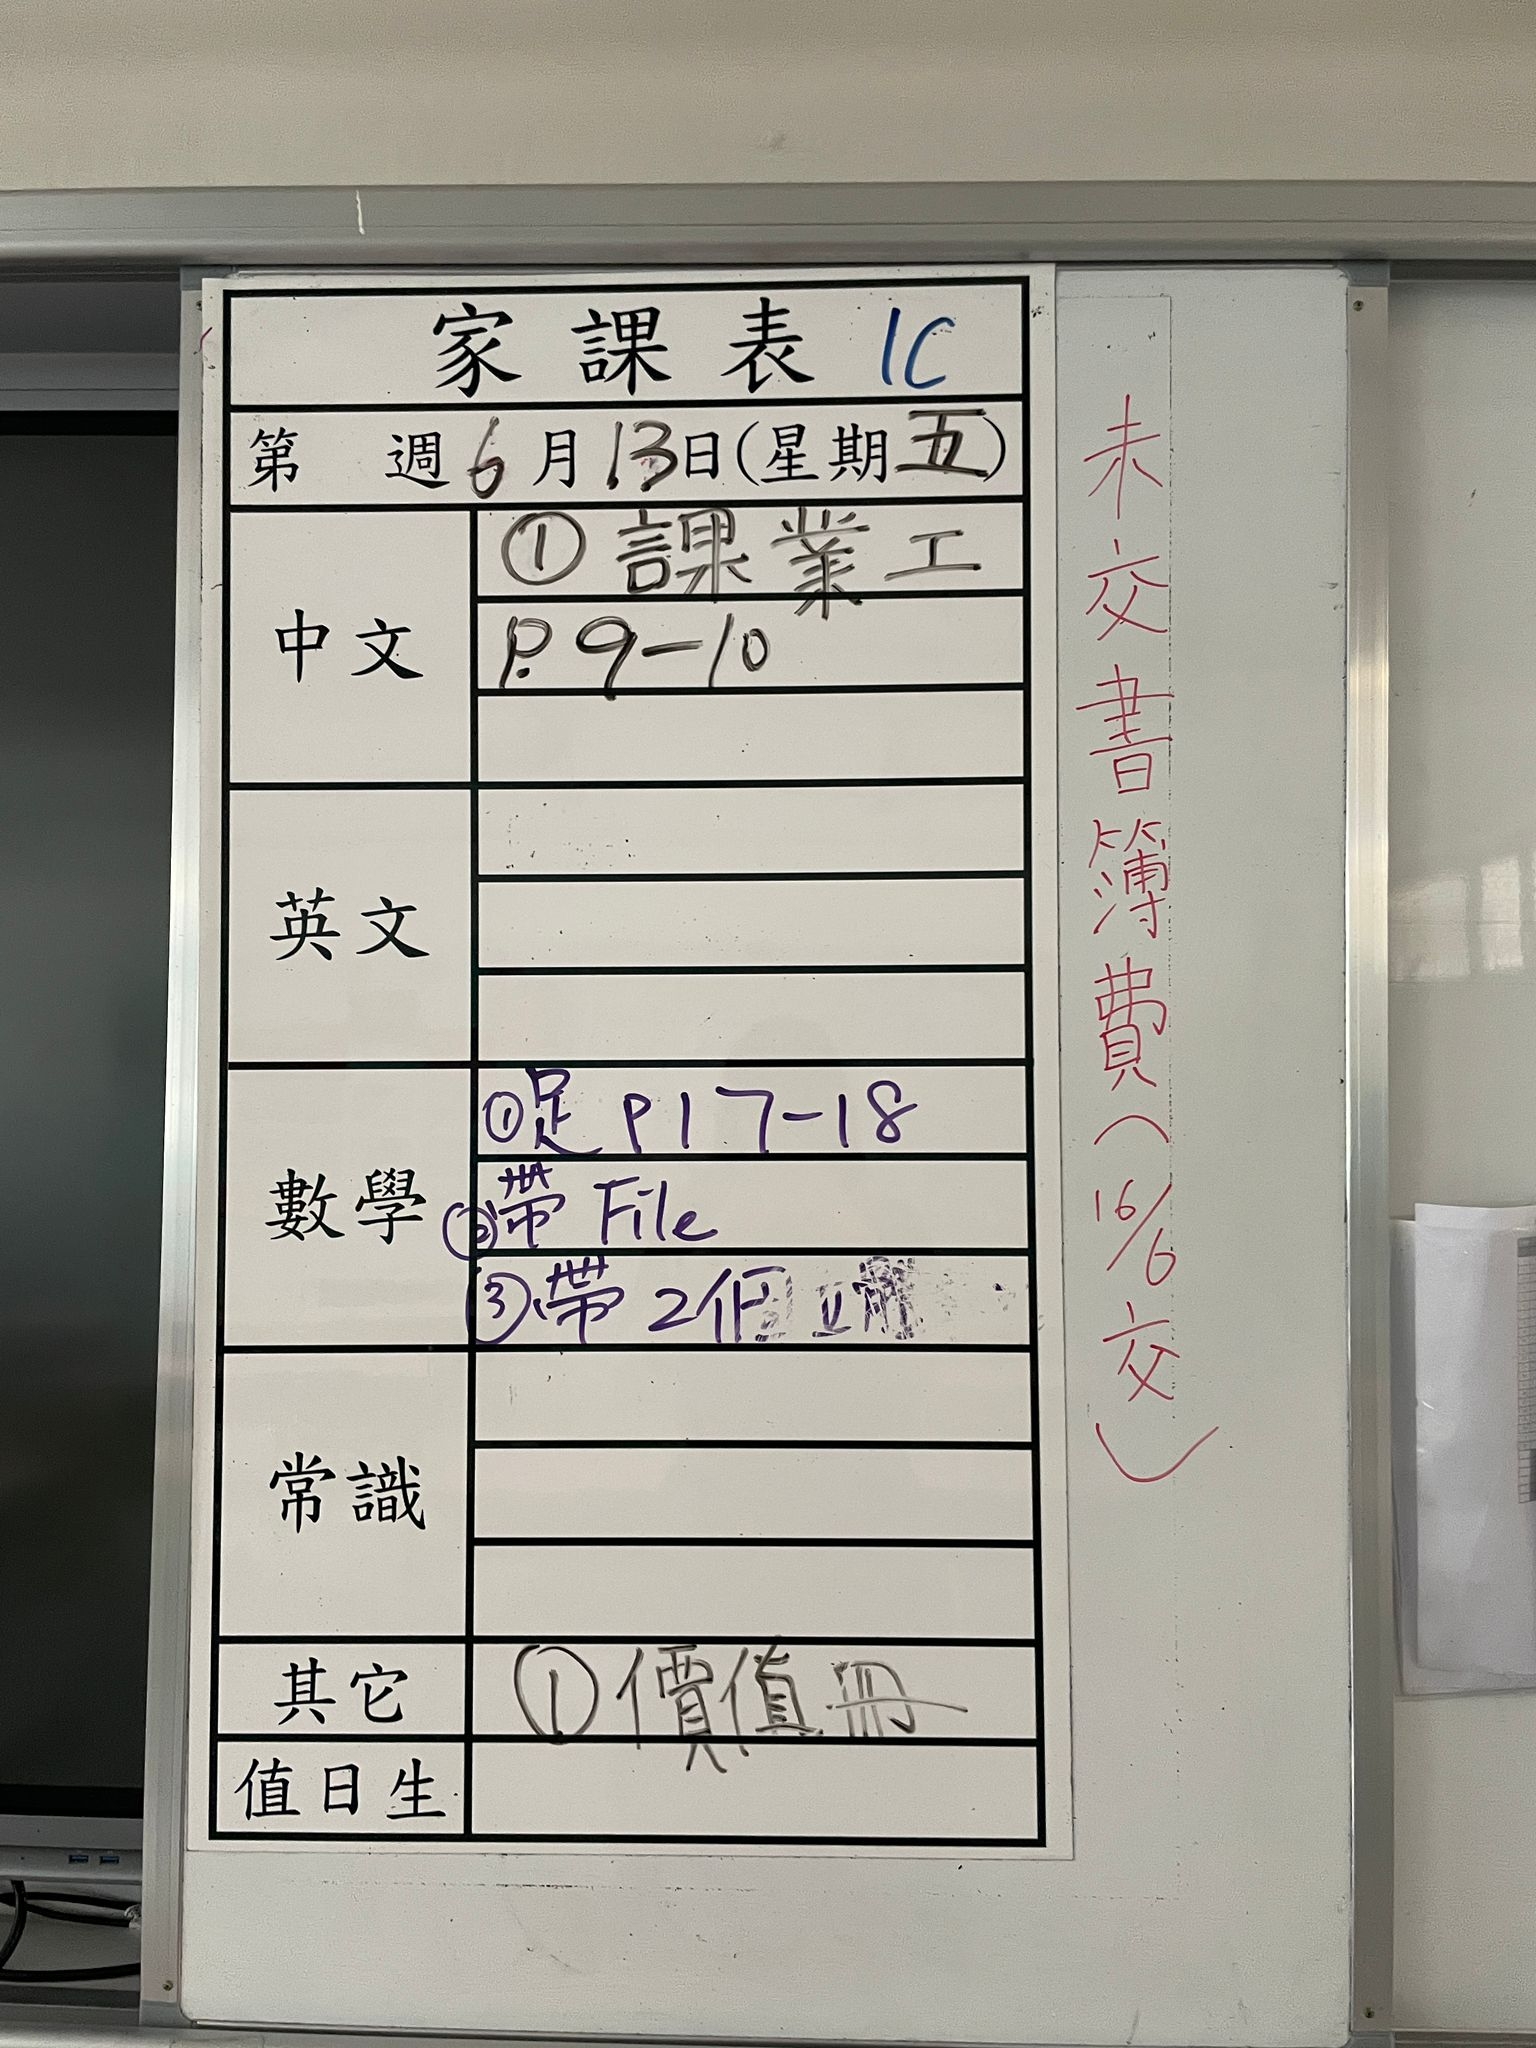 家課表 1C
第 週 6月13日(星期五)
中文
①課業工
P.9-10
英文
數學
①足 P17-18
②帶 File
③帶 2個
常識
其它
①價值冊
值日生
未交書簿費(16/6交)